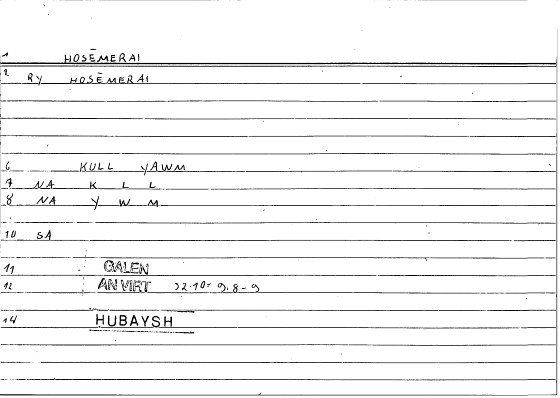 1 HOSĒMERAI
2 RY HOSĒMERAI
6 KULL YAWM
7 NA K L L
8 NA Y W M
10 SA
11 GALEN
12 AN VIRT 32.10-9.8-9
14 HUBAYSH